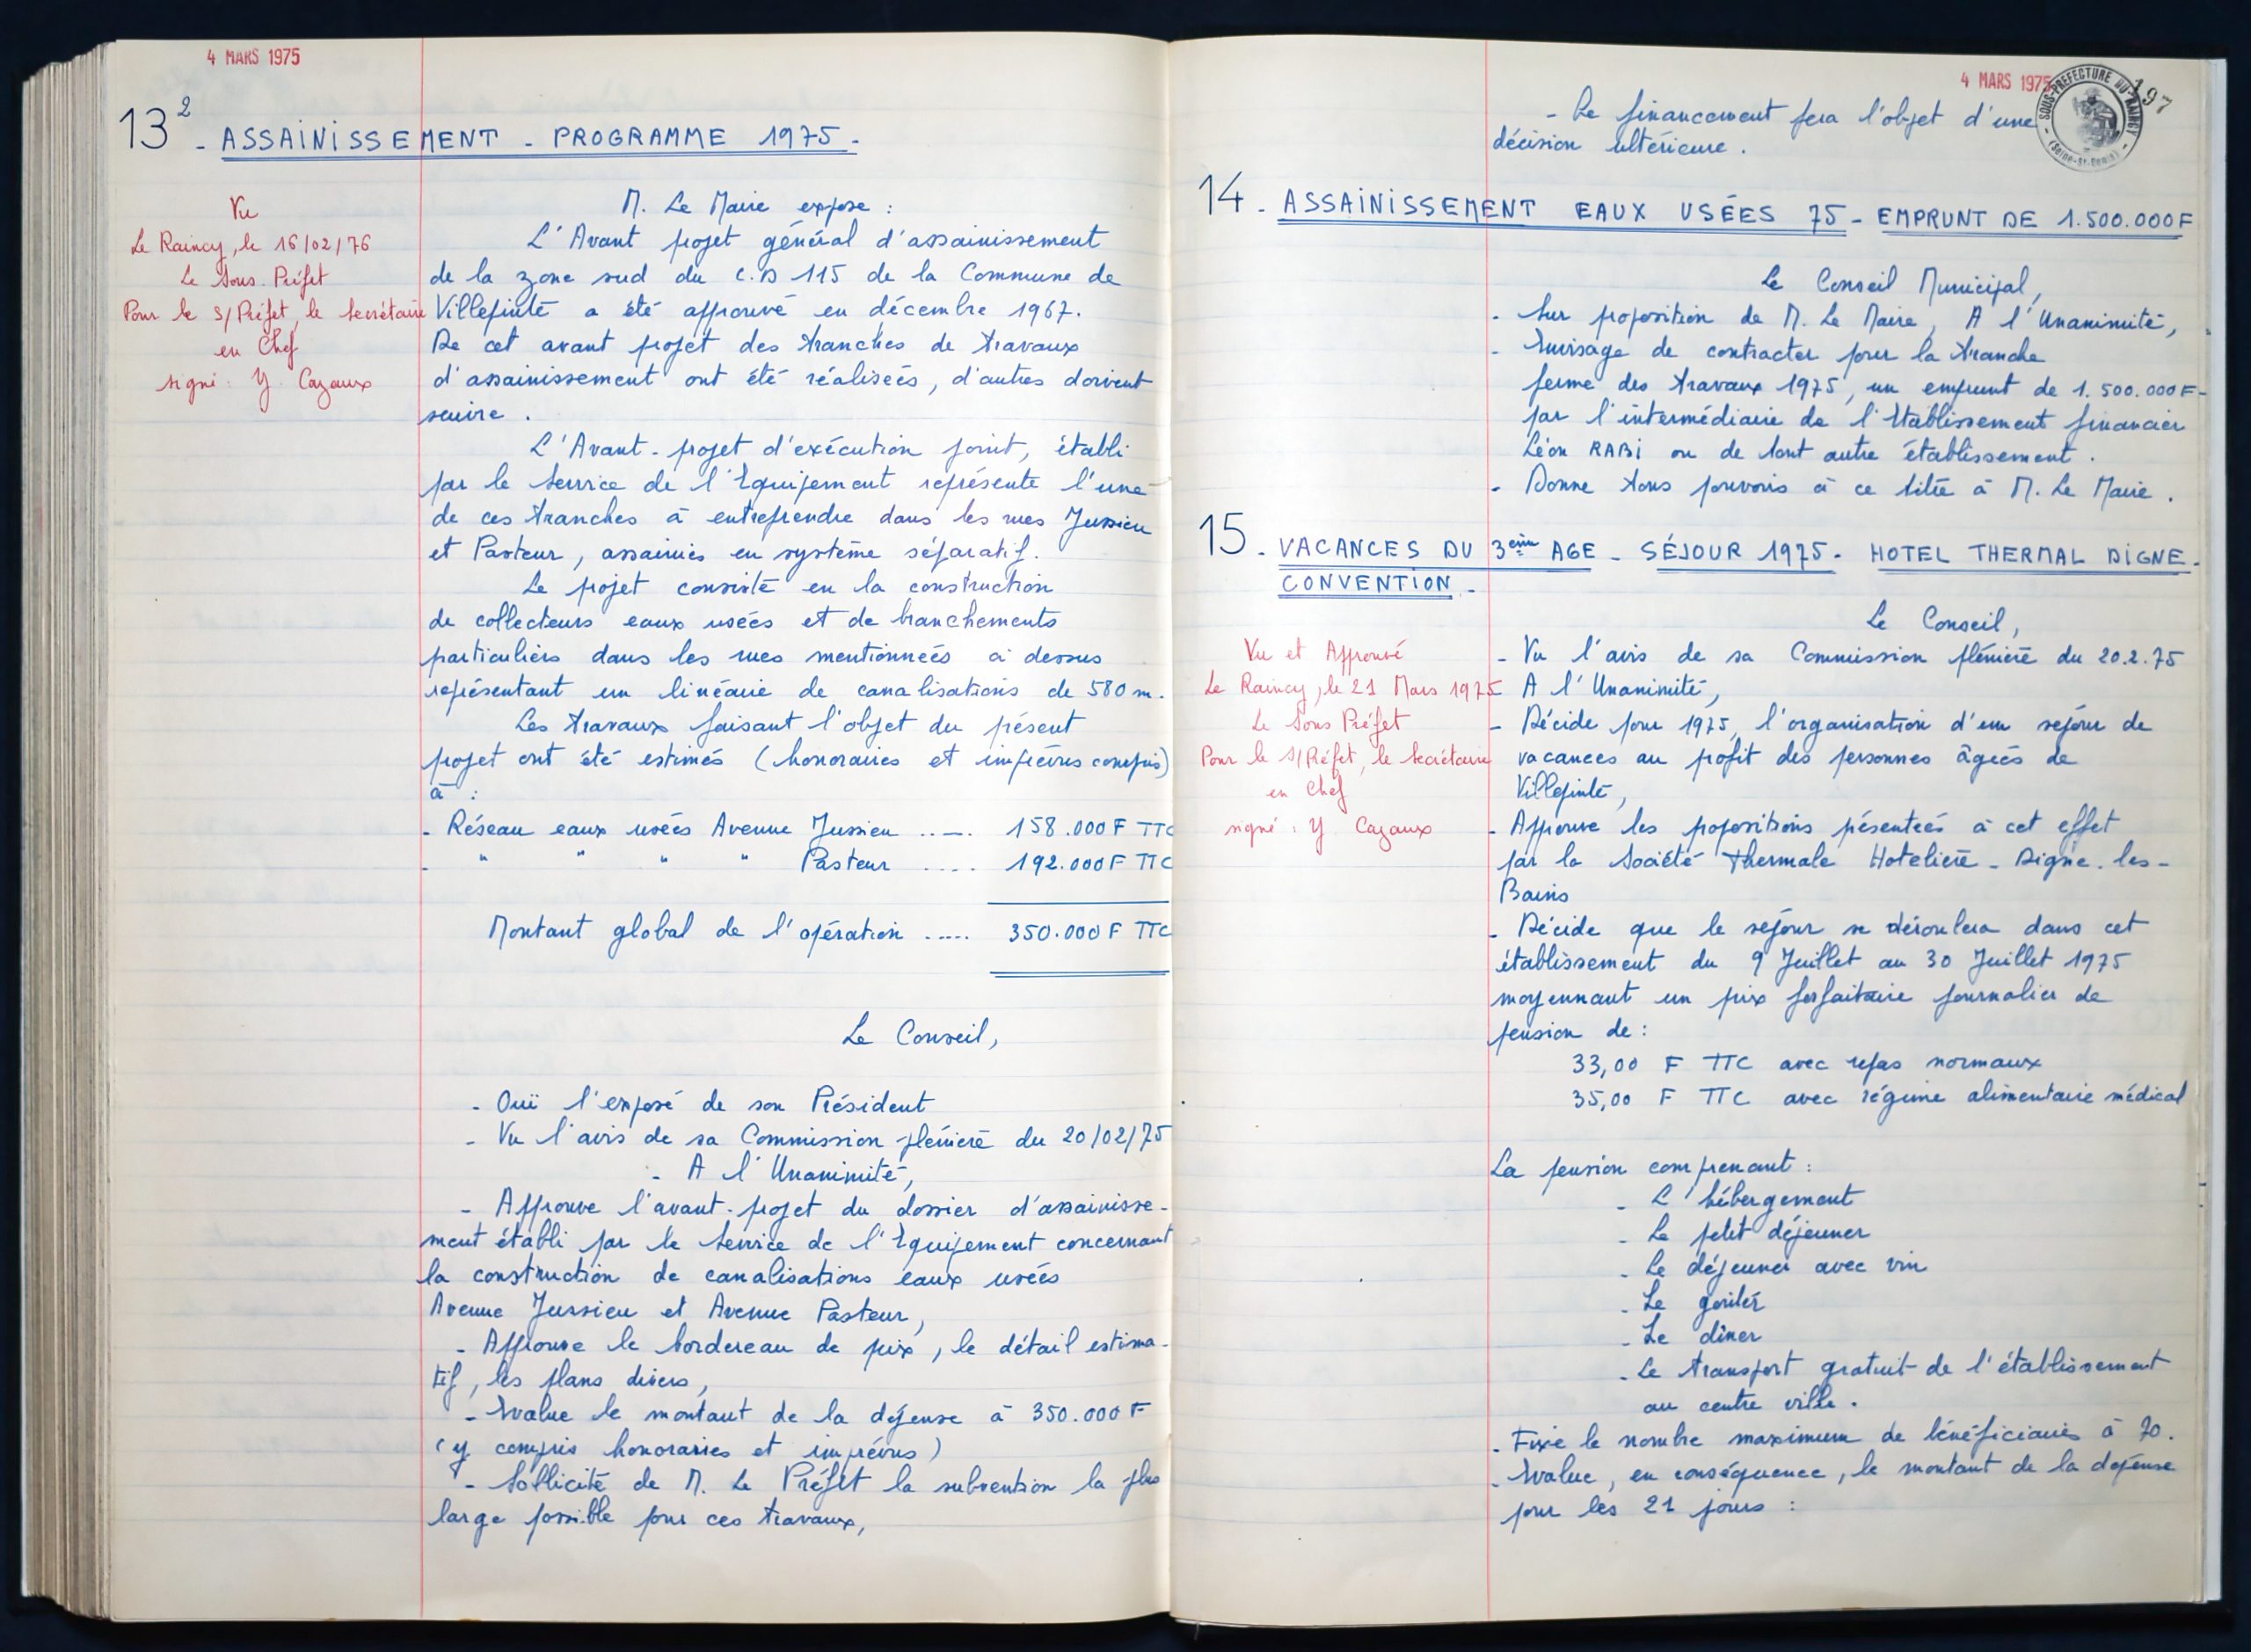 4 MARS 1975
13² - ASSAINISSEMENT - PROGRAMME 1975 -
Vu
Le Raincy, le 16/02/76
Le Sous-Préfet
Pour le S/Préfet, le Secrétaire
en Chef
signé : Y. Cazaux
M. Le Maire expose :
L'Avant projet général d'assainissement
de la zone sud du C.D 115 de la Commune de
Villepinte a été approuvé en décembre 1967.
De cet avant projet des tranches de travaux
d'assainissement ont été réalisées, d'autres doivent
suivre .
L'Avant-projet d'exécution joint, établi
par le Service de l'Equipement représente l'une
de ces tranches à entreprendre dans les rues Jussieu
et Pasteur, assainies en système séparatif.
Le projet consiste en la construction
de collecteurs eaux usées et de branchements
particuliers dans les rues mentionnées ci dessus
représentant un linéaire de canalisations de 580 m.
Les travaux faisant l'objet du présent
projet ont été estimés (honoraires et imprévus compris)
à :
- Réseau eaux usées Avenue Jussieu ..... 158.000 F TTC
- " " " " Pasteur .... 192.000 F TTC
Montant global de l'opération ..... 350.000 F TTC
Le Conseil,
- Ouï l'exposé de son Président
- Vu l'avis de sa Commission plénière du 20/02/75
- A l'Unanimité,
- Approuve l'avant-projet du dossier d'assainisse-
ment établi par le Service de l'Equipement concernant
la construction de canalisations eaux usées
Avenue Jussieu et Avenue Pasteur,
- Approuve le bordereau de prix, le détail estima-
tif, les plans divers,
- Evalue le montant de la dépense à 350.000 F
(y compris honoraires et imprévus)
- Sollicite de M. Le Préfet la subvention la plus
large possible pour ces travaux,
4 MARS 1975
SOUS-PREFECTURE DU RAINCY
(Seine-St-Denis)
197
- Le financement fera l'objet d'une
décision ultérieure .
14 - ASSAINISSEMENT EAUX USÉES 75 - EMPRUNT DE 1.500.000F
Le Conseil Municipal,
- Sur proposition de M. Le Maire, A l'Unanimité,
- Envisage de contracter pour la tranche
ferme des travaux 1975, un emprunt de 1.500.000F-
par l'intermédiaire de l'Etablissement financier
Léon RABI ou de tout autre établissement .
- Donne tous pouvoirs à ce titre à M. Le Maire .
15 - VACANCES DU 3ème AGE - SÉJOUR 1975 - HOTEL THERMAL DIGNE -
CONVENTION -
Vu et Approuvé
Le Raincy, le 21 Mars 1975
Le Sous Préfet
Pour le S/Préfet, le Secrétaire
en Chef
signé : Y. Cazaux
Le Conseil,
- Vu l'avis de sa Commission plénière du 20.2.75
- A l'Unanimité,
- Décide pour 1975, l'organisation d'un séjour de
vacances au profit des personnes âgées de
Villepinte,
- Approuve les propositions présentées à cet effet
par la Société Thermale Hotelière - Digne-les-
Bains
- Décide que le séjour se déroulera dans cet
établissement du 9 Juillet au 30 Juillet 1975
moyennant un prix forfaitaire journalier de
pension de :
33,00 F TTC avec repas normaux
35,00 F TTC avec régime alimentaire médical
La pension comprenant :
- L'hébergement
- Le petit déjeuner
- Le déjeuner avec vin
- Le goûter
- Le dîner
- Le transport gratuit de l'établissement
au centre ville .
- Fixe le nombre maximum de bénéficiaires à 70.
- Evalue, en conséquence, le montant de la dépense
pour les 21 jours :